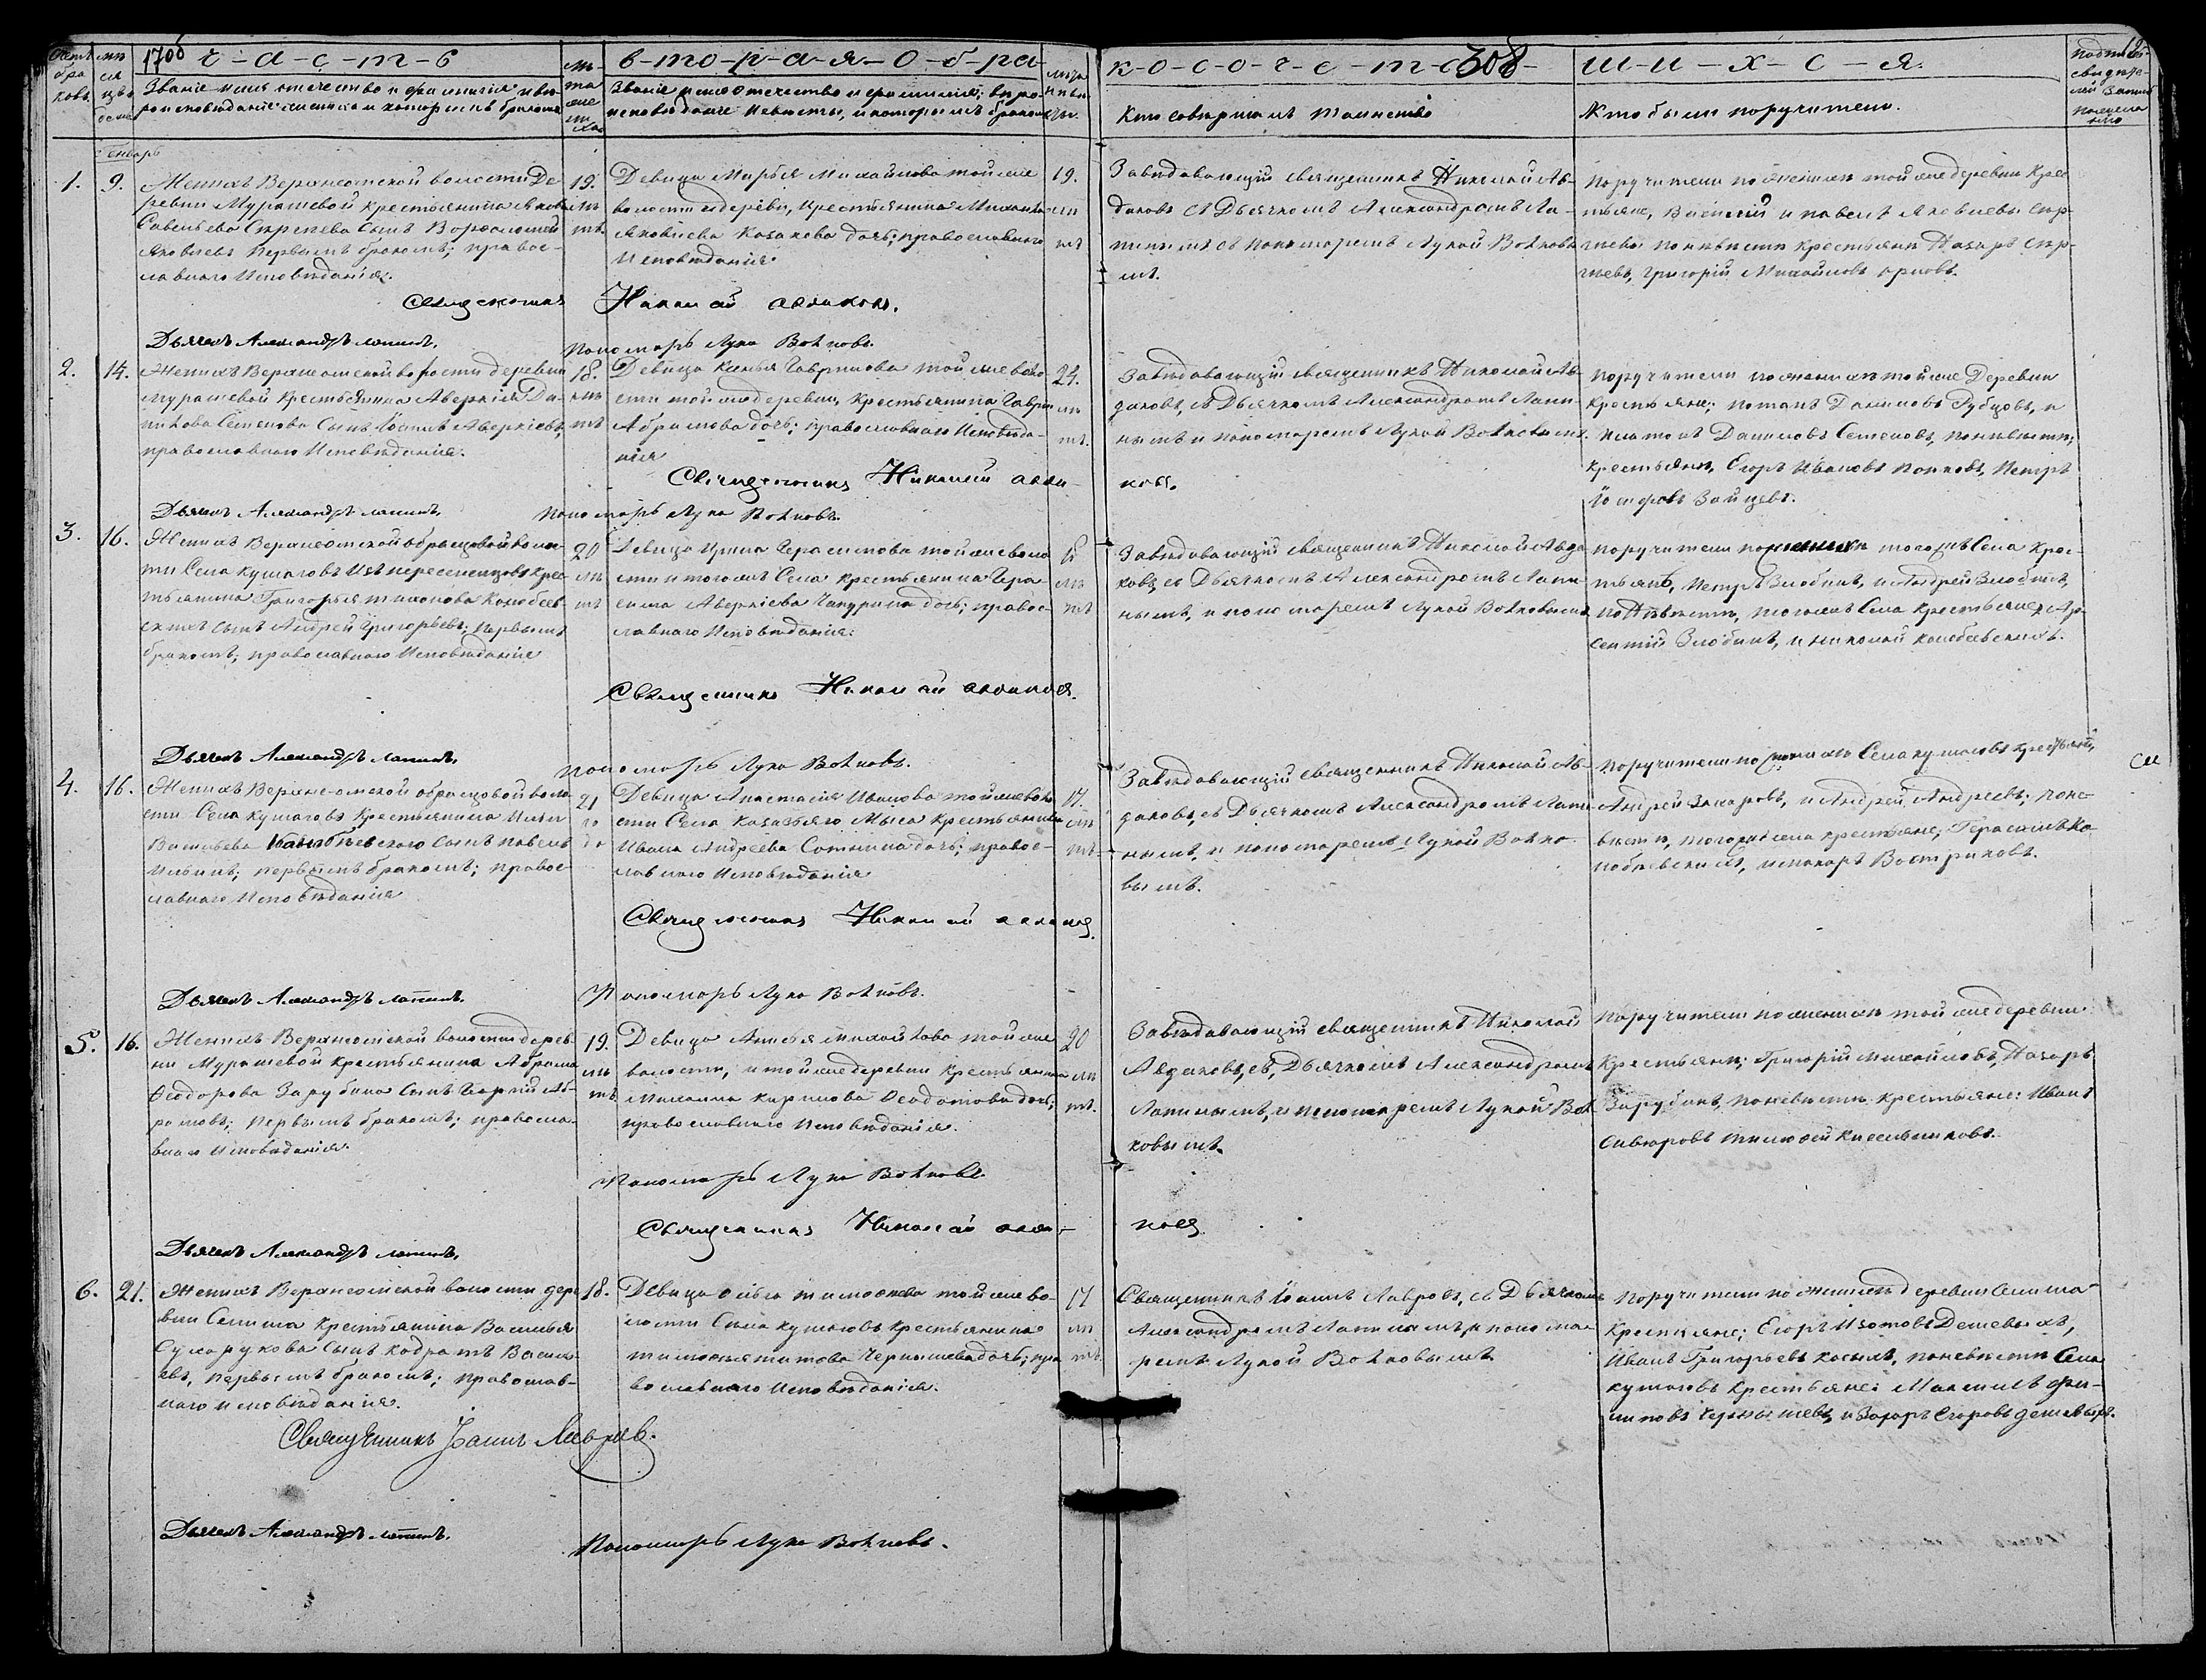 170б ч-а-с-т-ь
в-т-о-р-а-я-о б-р-а-
к-о-с-о-ч-е-т-
308
ш-и-х-с-я.
Званіе имя отечество и фамиліа и вѣ-
роисповѣданіе жениха и которымъ бракомъ
Званіе имя отечество и фамилія, вѣро-
исповѣданіе невѣсты, и которымъ бракомъ
Кто совершалъ таинство
Кто были поручители.
Генварь
1. 9.
Женихъ Верхнеомской волости Де-
ревни Мурашевой крестьянина Якова
Савельева сынъ
Яковлевъ первымъ бракомъ; правос-
лавнаго Исповѣданія.
19.
лѣ
тъ
Девица Марья Михайлова той же
волости и деревни, крестьянина Михаила
Яковлева Казакова дочь; православнаго
Исповѣданія.
19.
лѣ
тъ
Завѣдавающій священникъ Николай Ав-
даковъ съ Дьячкомъ Александромъ Ла-
пинымъ съ пономаремъ Лукой Волковы
мъ.
поручители по женихѣ той же деревни крес
тьяне, Василий и павелъ Яковлевы Сер-
гѣевы по невѣсти крестьяни Назаръ Сер-
гѣевъ, Григорій Михайловъ
Священникъ Николай Авдаковъ.
Дьячекъ Александръ Лапинъ.
Пономарь Лука Волковъ.
2. 14.
Женихъ Верхнеомской волости деревни
Мурашевой крестьянина Аверкія Да-
нилова Семенова сынъ Іоаннъ Аверкіевъ,
православнаго Исповѣданія.
18.
лѣ
тъ
Девица Гаврилова той же воло-
сти той же деревни, крестьянина Гаврил
Абрамова дочь; православнаго Исповѣда-
нія
24.
лѣ
тъ.
Завѣдавающій священникъ Николай Ав-
даковъ, съ Дьячкомъ Александромъ Лапи-
нымъ и пономаремъ Лукой Волковымъ.
поручители по женихѣ той же Деревни
крестьяне; потапъ Даниловъ Рубцовъ, и
платонъ Даниловъ Семеновъ, по невѣсти;
крестьяни, Егоръ Ивановъ Петръ
Іосифовъ Зайцевъ.
Священникъ Николай Авда-
ковъ.
Дьячекъ Александръ Лапинъ.
Пономарь Лука Волковъ.
3. 16.
Женихъ Верхнеомской образцовой волос-
ти Села Кушаговъ Изъ переселенцовъ Крес
тьянина Григорья тихонова Конобеев-
скихъ сынъ Андрей Григорьевъ; первымъ
бракомъ; православнаго Исповѣданія
20
лѣ
тъ
Девица Ирина Герасимова той же воло
сти и того же Села крестьянина Гера
сима Аверкіева Чапурина дочь; правос-
лавнаго Исповѣданія:
лѣ
тъ
Завѣдавающій священникъ Николай Авда
ковъ, съ Дьячкомъ Александромъ Лапи-
нымъ, и пономаремъ Лукой Волковымъ
поручители по женихѣ тогожъ Села крес-
тьянъ, Петръ Злобинъ, и Андрей Злобинъ,
по невѣсти, того же Села крестьяне Ар-
сентий Злобинъ, и николай конобеевскихъ.
Священникъ Николай Авдаковъ.
Дьячекъ Александръ Лапинъ.
пономарь Лука Волковъ.
4. 16.
Женихъ Верхне-омской образцовой воло
сти Села Кушаговъ крестьянина Ильи
Васильева Канобѣевскаго сынъ павелъ
Ильинъ; первымъ бракомъ; правос-
лавнаго Исповѣданія
21
го
до
Девица Анастасія Иванова той же воло
сти Села Казачьяго Мыса крестьянина
Ивана Андреева Сотнина дочь; правос-
лавнаго Исповѣданія
17.
лѣ
тъ
Завѣдавающій священникъ Николай Ав-
даковъ, съ Дьячкомъ Александромъ Лапи-
нымъ, и пономаремъ Лукой Волко-
вымъ.
поручители по женихѣ Села кушаговъ крестьяни,
Андрей Захаровъ, и Андрей Андреевъ; поне-
вѣсти, того же села крестьяне; Герасимъ Ко-
нобѣевскихъ, и макаръ Востриковъ.
Священникъ Николай Авдаковъ.
Дьячекъ Александръ Лапинъ.
Пономарь Лука Волковъ.
5. 16.
Женихъ Верхнеомской волости дерев-
ни Мурашевой крестьянина Абрама
Ѳеодорова Зарубина сынъ Георгій Аб-
рамовъ; первымъ бракомъ; правосла-
внаго Исповѣданія.
19.
лѣ
тъ
Девица Анисья Михайлова той же
волости, и той же деревни крестьянина
Михаила кирилова Ѳеодотова дочь;
православнаго Исповѣданія.
20
лѣ
тъ.
Завѣдавающій священникъ Николай
Авдаковъ, съ, Дьячкомъ Александромъ
Лапинымъ, и пономаремъ Лукой Вол-
ковымъ.
поручители по женихѣ той же деревни
Крестьяни; Григорій михайловъ, Назаръ
Зарубинъ, по невѣсти крестьяне: Иванъ
Сивторовъ тимоѳей
Пономарь Лука Волковъ
Священникъ Николай Авда-
ковъ
Дьячекъ Александръ Лапинъ.
6. 21.
Женихъ Верхнеомской волости дере
вни Сешма крестьянина Василья
Сухорукова сынъ Кодратъ Василь
евъ, первымъ бракомъ; православ-
наго исповѣданія.
18.
Девица Ольга тимоѳеева той же во-
лости Села кушаговъ крестьянина
тимоѳея титова Чернышева дочь; пра
вославнаго Исповѣданія.
17
лѣ
тъ.
Священникъ Іоаннъ Лавровъ, съ Дьячкомъ
Александромъ Лапинымъ, и понома-
ремъ Лукой Волковымъ.
поручители по женихѣ деревни Сешма
Крестьяне; Егоръ Изотовъ Дешевыхъ,
Иванъ Григорьевъ по невѣсти Села
кушаговъ крестьяне: Максимъ фи-
липовъ Чернышевъ, и Захаръ Егоровъ дешевыхъ.
Священникъ Іоаннъ Лавровъ.
Дьячекъ Александръ Лапинъ.
Пономарь Лука Волковъ.